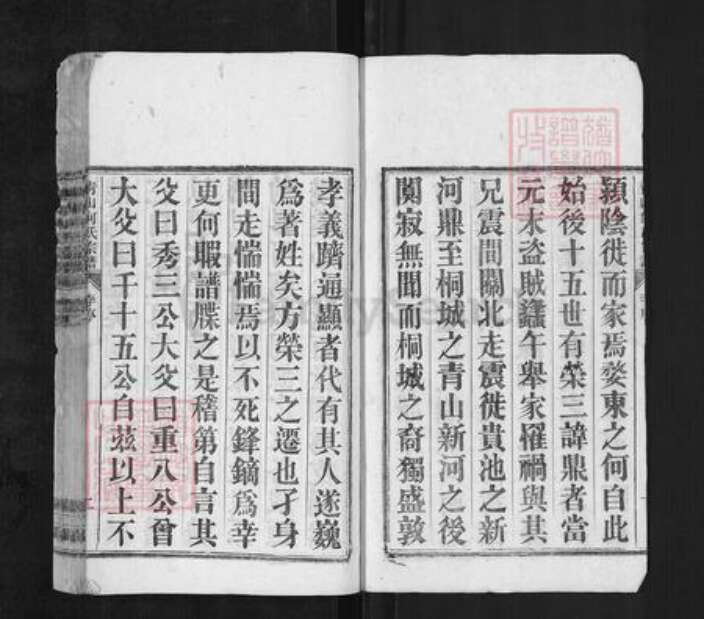 潁陰徙而家焉婺東之何自此
始後十五世有榮三諱鼎者當
元末盗賊蠭午舉家罹禍與其
兄震間關北走震徙貴池之新
河鼎至桐城之青山新河之後
闃寂無聞而桐城之裔獨盛敦
孝義躋通顯者代有其人遂巍
爲著姓矣方榮三之遷也孑身
間走惴惴焉以不死鋒鏑爲幸
更何暇譜牒之是稽第自言其
父曰秀三公大父曰重八公曾
大父曰千十五公自茲以上不
青山何氏宗譜